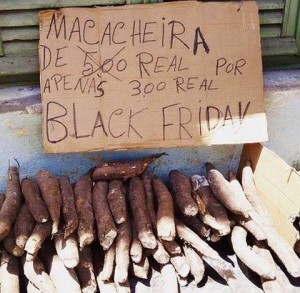 MACACHEIRA
DE 5,00 REAL POR
APENAS 3,00 REAL
BLACK FRIDAY